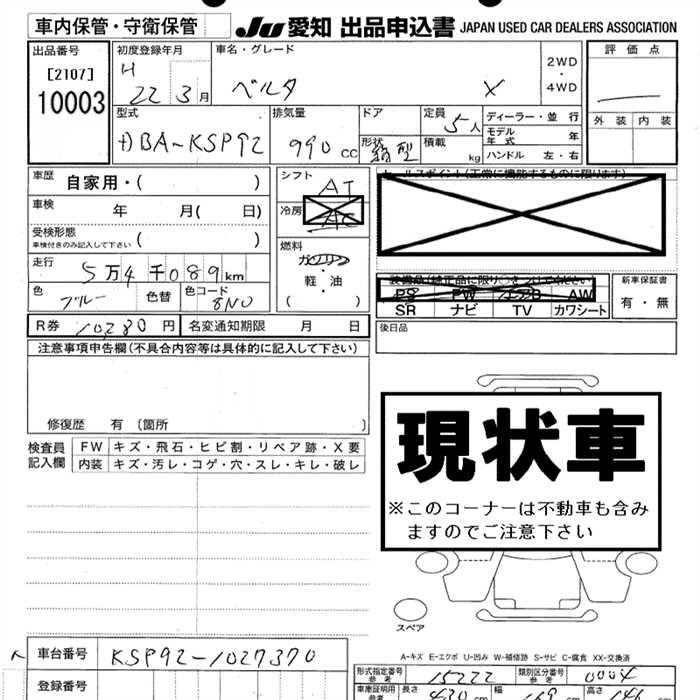 車内保管・守衛保管 JU 愛知 出品申込書 JAPAN USED CAR DEALERS ASSOCIATION
出品番号 初度登録年月 車名・グレード 2WD ・ 4WD 評価点
[2107] H 22 3月 ベルタ X
10003
型式 排気量 ドア 定員 ディーラー・並行 外装 内装
DBA-KSP92 990cc 形状 箱型 5人 積載 kg モデル年式 年
ハンドル 左・右
車歴 自家用・( ) シフト AT セールスポイント(正常に機能するものに限ります)
車検 年 月( 日) 冷房 AC
受検形態 車検付きのみ記入して下さい ( )
走行 5万4千089km 燃料 ガソリン ・ 軽・油 ( )
色 ブルー 色替 色コード 8N0
PS PW AW
SR ナビ TV カワシート
新車保証書 有・無
R券 10,280円 名変通知期限 月 日 後日品
注意事項申告欄(不具合内容等は具体的に記入して下さい)
修復歴 有〔箇所 〕
検査員記入欄 FW キズ・飛石・ヒビ割・リペア跡・X要
内装 キズ・汚レ・コゲ・穴・スレ・キレ・破レ
現状車
※このコーナーは不動車も含み
ますのでご注意下さい
スペア
A-キズ E-エクボ U-凹み W-補修跡 S-サビ C-腐食 XX-交換済
車台番号 KSP92-1027370
形式指定番号 参考 15222 類別区分番号 参考 0004
登録番号 車庫証明用 参考 長さ 430 cm 幅 169 cm 高さ 146